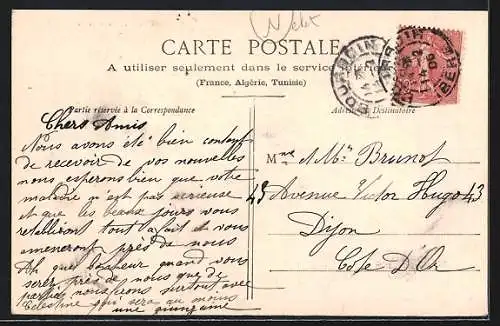 CARTE POSTALE
A utiliser seulement dans le service
(France, Algérie, Tunisie)
Partie réservée à la Correspondance
Adresse Destinataire
Chers Amis
Nous avons été bien content
de recevoir de vos nouvelles
nous esperons bien que votre
maladie n'est pas serieuse
et que les beaux jours vous
retabliront tout a fait et vous
ameneront près de nous
Ah quel bonheur quand vous
serez près de nous que de
parties nous ferons surtout avec
Celestine qui sera au moins
une quinzaine
Mme & Mr Brunot
43 Avenue Victor Hugo 43
Dijon
Cote D'Or
BOURGOIN